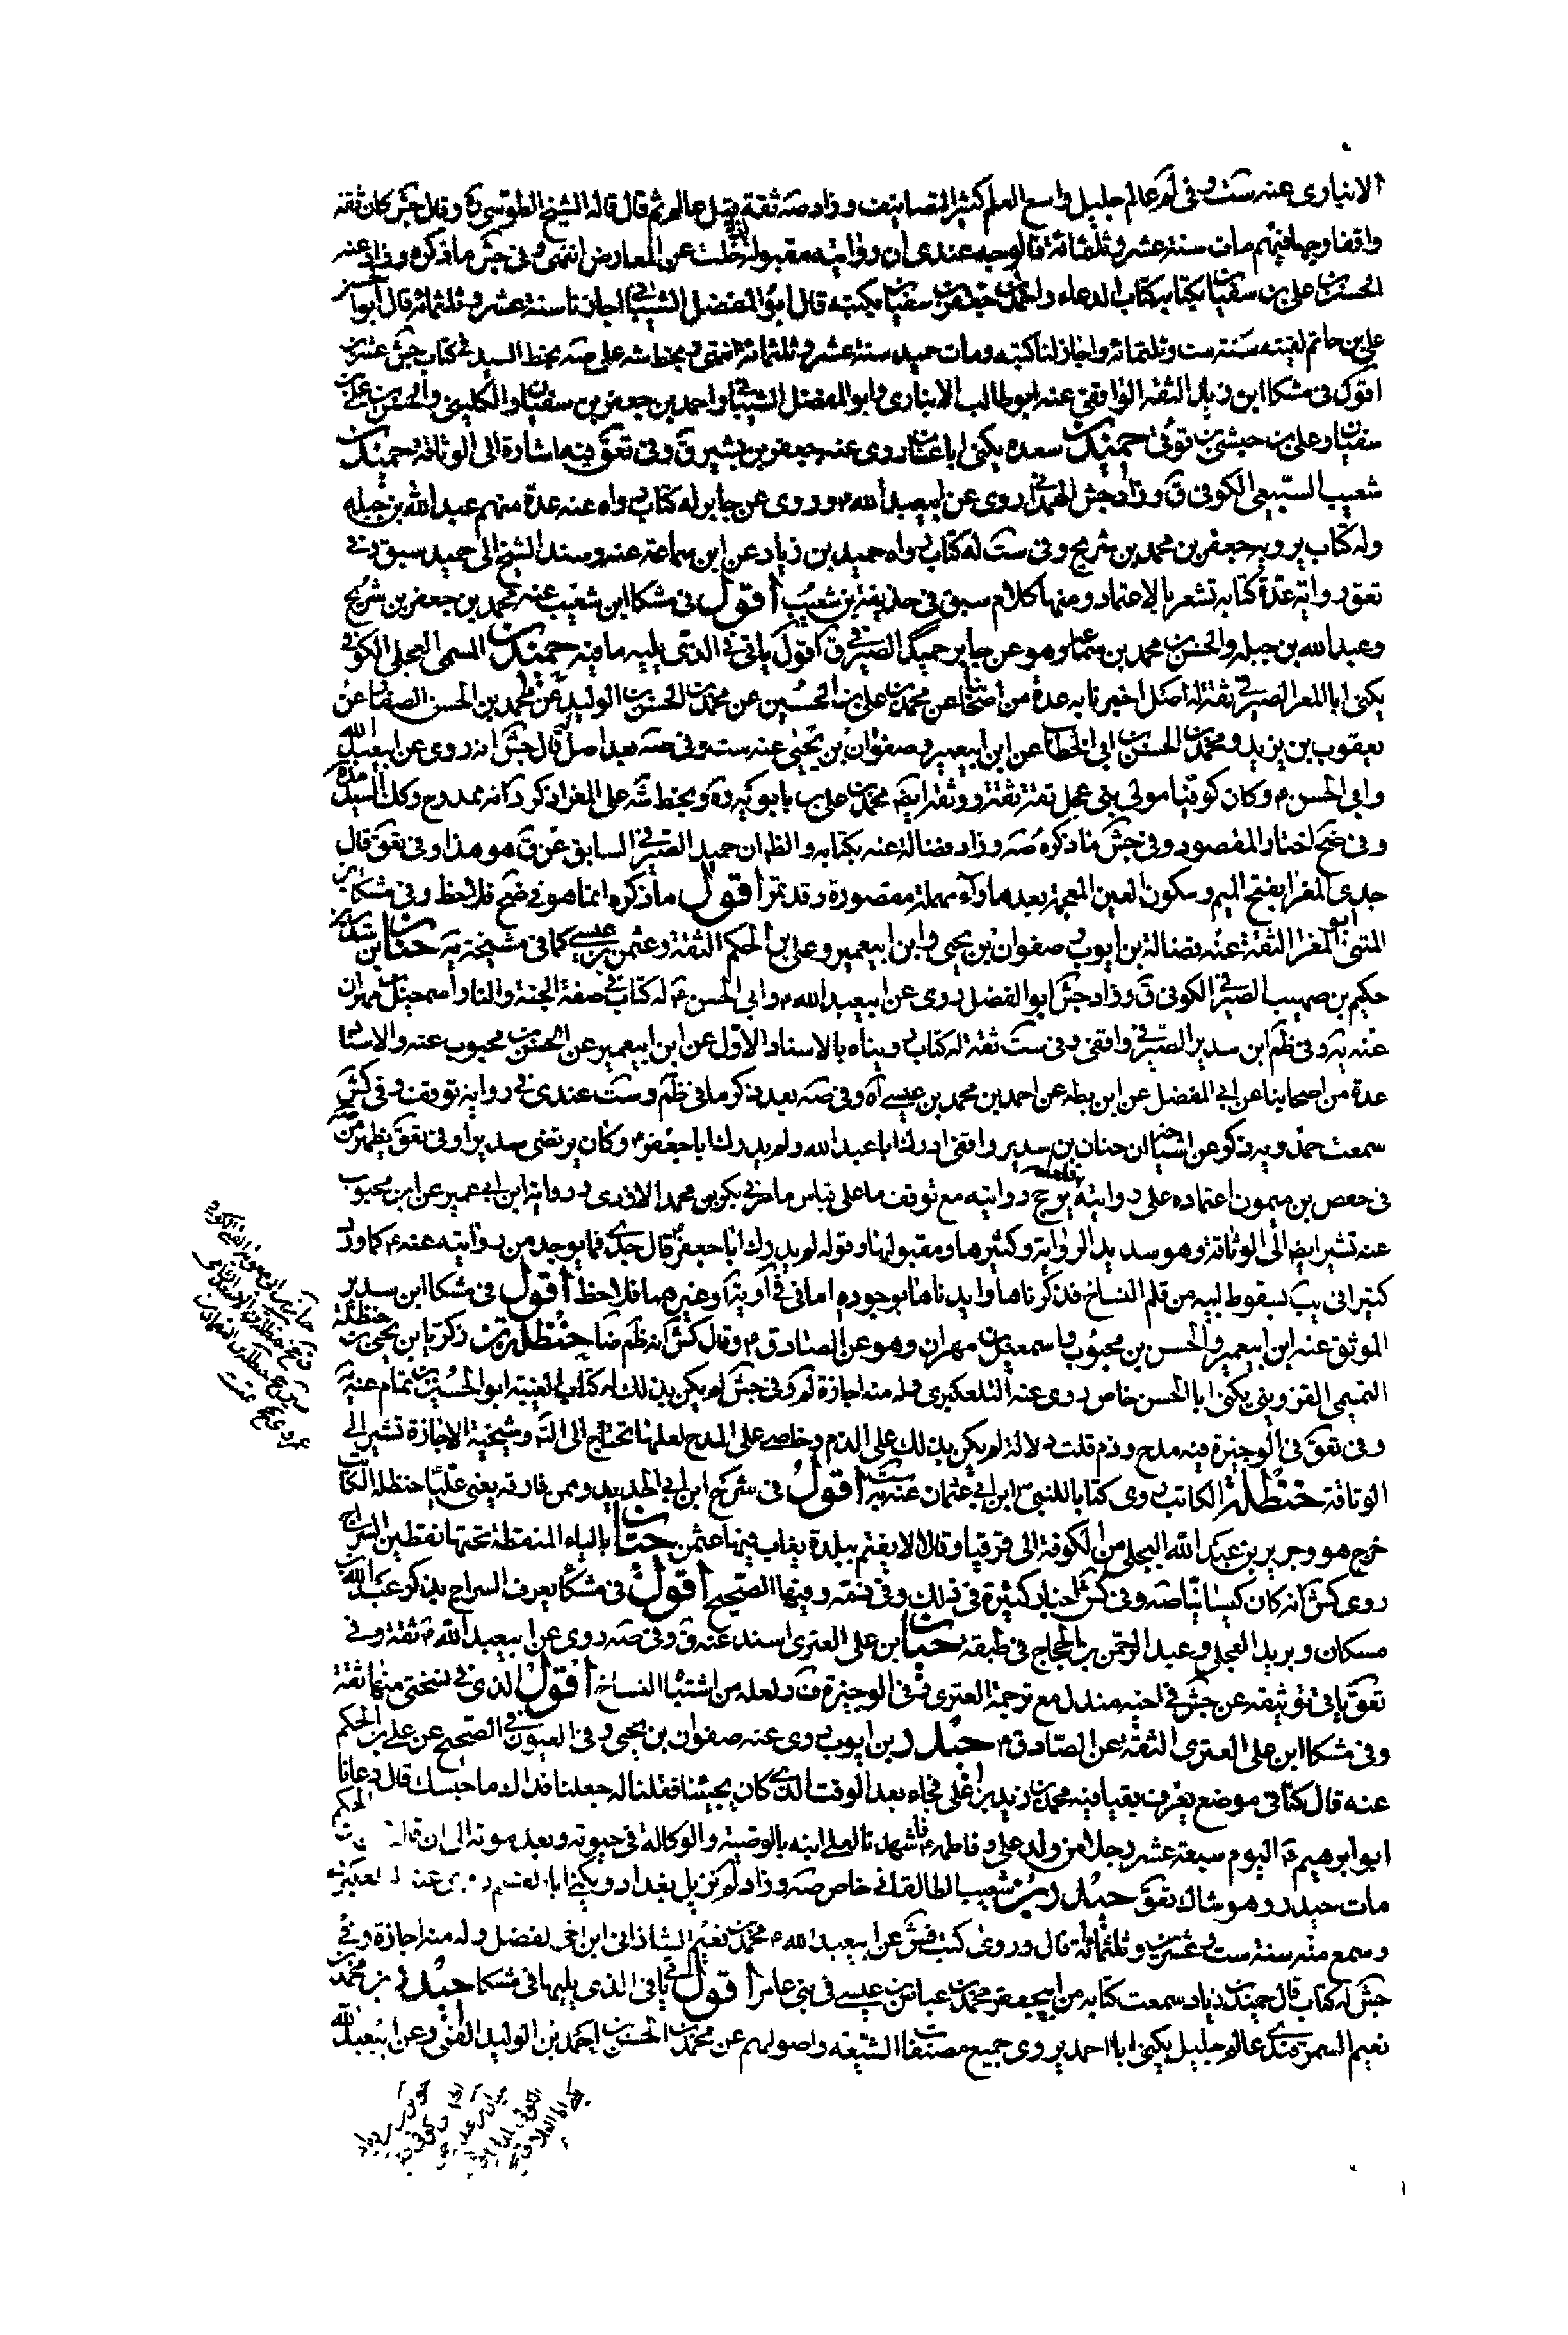 الانبارى عنه ست وفى لم عالم جليل واسع العلم كثير التصانيف وزاد صه ثقة قبل عالم ثم قال قاله الشيخ الطوسى وقال جش كان ثقة
واقفا وجها فيهم مات سنة عشر وثلثمائة فالوجه عندى ان روايته مقبولة اذا خلت عن المعارض انتهى وفى جش ما ذكره وزاد عنه
الحسين بن على بن سفيان بكتابه كتاب الدعاء واحمد بن جعفر بن سفيان بكتبه قال ابو المفضل الشيبانى اجازنا سنة عشر وثلثمائة قال ابو الحسن
على بن حاتم لقيته سنة ست وثلثمائة واجاز لنا كتبه ومات حميد سنة عشر وثلثمائة انتهى وبخط شه على صه بخط السيد فى كتاب جش عشرين
اقول فى مشكا ابن زياد الثقة الواقفى عنه ابو طالب الانبارى وابو المفضل الشيبانى واحمد بن جعفر بن سفيان والكلينى والحسين بن على بن
سفيان وعلى بن حبشى بن قونى حميد بن سعده يكنى ابا غسان روى عنه جعفر بن بشير ق وفى تعق فيه اشارة الى الوثاقة حميد بن
شعيب السبيعى الكوفى ق وزاد جش الهمدانى روى عن ابيعبد الله ع وروى عن جابر له كتاب رواه عنه عدة منهم عبد الله بن جبله
وله كتاب يرويه جعفر بن محمد بن شريح وفى ست له كتاب رواه حميد بن زياد عن ابن سماعة عنه وسند الشيخ الى حميد سبق وفى
تعق رواية عدة كتابه تشعر بالاعتماد ومنها كلام سبق فى حذيفة بن شعيب اقول فى مشكا ابن شعيب عنه محمد بن جعفر بن شريح
وعبد الله بن جبله والحسن بن محمد بن سماعة وهو عن جابر حميد الصيرفى ق اقول ياتى فى الذى يليه ما فيه حميد بن المسمى العجلى الكوفى
يكنى ابا المغرا الصيرفى ثقة له اصل اخبرنا به عدة من اصحابنا عن محمد بن على بن الحسين عن محمد بن الحسن بن الوليد عن محمد بن الحسن الصفار عن
يعقوب بن يزيد ومحمد بن الحسين بن ابى الخطاب عن ابن ابيعمير وصفوان بن يحيى عنه ست وفى صه بعد اصل قال جش انه روى عن ابيعبد الله
وابى الحسن ع وكان كوفيا مولى بنى عجل ثقة ثقة ووثقه ايضا محمد بن على بن بابويه ره وبخط شه على المغرا ذكر د انه ممدود وكذا السيد
وفى ضح اختار المقصور وفى جش ما ذكره صه وزاد فضالة عنه بكتابه والظ ان حميد الصيرفى السابق عن ق هو هذا وفى تعق قال
جدى المغرا بفتح الميم وسكون الغين المعجمة بعدها راء مهملة مقصورة وقد تمد اقول ما ذكره انما هو فى ضح فلاحظ وفى مشكا ابن
المثنى ابو المغرا الثقة عنه فضالة بن ايوب وصفوان بن يحيى وابن ابيعمير وعلى بن الحكم الثقة وعثمن بن عيسى كما فى مشيخة يه حنان بن سدير بن
حكيم بن صهيب الصيرفى الكوفى ق وزاد جش ابو الفضل روى عن ابيعبد الله ع وابى الحسن ع له كتاب فى صفة الجنة والنار اسمعيل بن مهران
عنه به وفى ظم ابن سدير الصيرفى واقفى وفى ست ثقة له كتاب رويناه بالاسناد الاول عن ابن ابيعمير عن الحسن بن محبوب عنه والاسناد
عدة من اصحابنا عن ابى المفضل عن ابن بطه عن احمد بن محمد بن عيسى اه وفى صه بعد ذكر ما فى ظم وست عندى فى روايته توقف وفى كش
سمعت حمدويه ذكر عن اشياخه ان حنان بن سدير واقفى ادرك ابا عبد الله ولم يدرك ابا جعفر ع وكان يرتضى سديرا وفى تعق يظهر من صه
فى حفص بن ميمون اعتماده على روايته يرجح روايته مع توقف ما على قياس ما مر فى بكر بن محمد الازدى ورواية ابن ابى عمير عن ابن محبوب
عنه تشير ايضا الى الوثاقة وهو سديد الرواية وكثيرها ومقبولها وقوله لم يدرك ابا جعفر ع قال جدى فما يوجد من روايته عنه ع كما ورد
كثيرا فى يب بسقوط ابيه من قلم النساخ فذكرناها وايدناها بوجوده اما فى فى او يه او غيرهما فلاحظ اقول فى مشكا ابن سدير
الموثق عنه ابن ابيعمير والحسن بن محبوب واسمعيل بن مهران وهو عن الصادق ع وقال كش انه ظم ضا حنظلة بن زكريا بن يحيى بن حنظلة
التميمى القزوينى يكنى ابا الحسن خاص روى عنه التلعكبرى وله منه اجازة لم وفى جش لم يكن بذلك له كتاب الغيبة ابو الحسين بن تمام عنه به
وفى تعق فى الوجيزة فيه مدح وذم قلت دلالة لم يكن بذلك على الذم وخاصى على المدح لعلها تحتاج الى التامل وشيخية الاجازة تشير الى
الوثاقة حنظلة الكاتب روى كتابا للنبى ص ابن ابى عثمان عنه به ست اقول فى شرح ابن ابى الحديد وممن فارقه يعنى عليا حنظلة الكاتب
خرج هو وجرير بن عبد الله البجلى من الكوفة الى قرقيسا وقالا لا نقيم ببلدة يعاب فيها عثمن حيان بالياء المنقطة تحتها نقطين السراج
روى كش انه كان كيسانيا صه وفى كش اخبار كثيرة فى ذلك وفى ذمه وفيها الصحيح اقول فى مشكا يعرف السراج بذكر عبد الله بن
مسكان وبريد العجلى وعبد الرحمن بن الحجاج فى طبقته حيان بن على العنزى اسند عنه ق وفى صه روى عن ابيعبد الله ع ثقة وفى
تعق ياتى توثيقه عن جش فى اخيه مندل مع ترجمة العنزى ففى الوجيزة ق ولعله من اشتباه النساخ اقول الذى فى نسختى منها ثقة
وفى مشكا ابن على العنزى الثقة عن الصادق ع حيدر بن ايوب روى عنه صفوان بن يحيى وفى العيون فى الصحيح عن على بن الحكم
عنه قال كنا فى موضع يعرف بقبا فيه محمد بن زيد بن على فجاء بعد الوقت الذى كان يجيئنا فقلنا له جعلنا فداك ما حبسك قال دعانا
ابو ابرهيم ع اليوم سبعة عشر رجلا من ولد على وفاطمة ع فاشهدنا لعلى ابنه بالوصية والوكالة فى حيوته وبعد موته الى ان قال
مات حيدر وهو شاك تعق حيدر بن شعيب الطالقانى خاص صه وزاد لم نزيل بغداد ويكنى ابا القسم
وسمع منه سنة ست وعشرين وثلثمائة قال وروى كتب فش عن ابيعبد الله محمد بن نعيم الشاذانى ابن اخى الفضل وله منه اجازة وفى
جش له كتاب قال حميد بن زياد سمعت كتابه من ابيجعفر محمد بن عباس بن عيسى فى بنى عامر اقول ياتى فى الذى يليها فى مشكا حيدر بن محمد بن
نعيم السمرقندى عالم جليل يكنى ابا احمد يروى جميع مصنفات الشيعة واصولهم عن محمد بن الحسن بن احمد بن الوليد القمى وعن ابيعبد الله